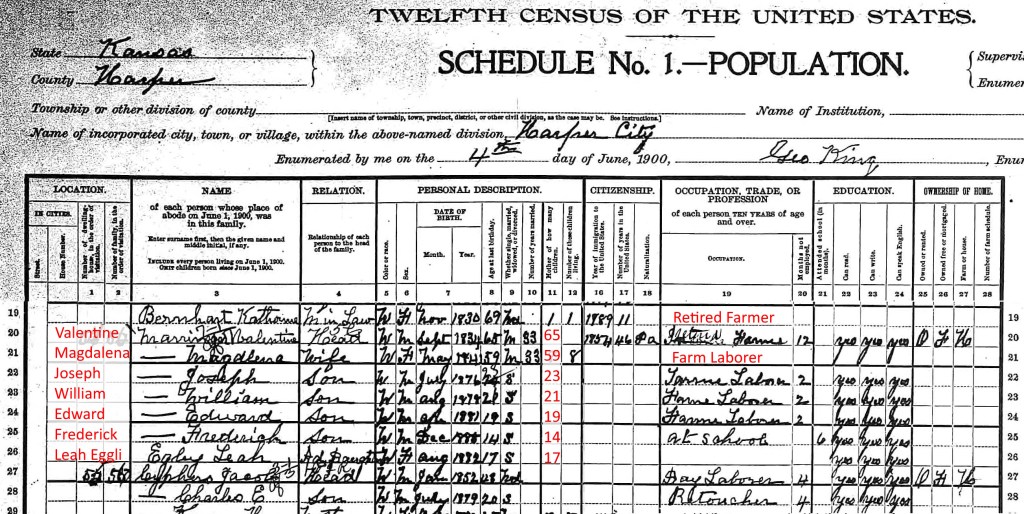 TWELFTH CENSUS OF THE UNITED STATES.
State Kansas
County Harper
SCHEDULE No. 1.—POPULATION.
{ Supervis
Enumer
Township or other division of county
[Insert name of township, town, precinct, district, or other civil division, as the case may be. See instructions.]
Name of Institution,
Name of incorporated city, town, or village, within the above-named division, Harper City
Enumerated by me on the 4th day of June, 1900, Geo King , Enu
LOCATION. NAME RELATION. PERSONAL DESCRIPTION. CITIZENSHIP. OCCUPATION, TRADE, OR PROFESSION EDUCATION. OWNERSHIP OF HOME.
IN CITIES.
Street.
House Number.
Number of dwelling-house, in the order of visitation.
Number of family, in the order of visitation.
of each person whose place of abode on June 1, 1900, was in this family.
Enter surname first, then the given name and middle initial, if any.
INCLUDE every person living on June 1, 1900.
OMIT children born since June 1, 1900.
Relationship of each person to the head of the family.
Color or race.
Sex.
DATE OF BIRTH.
Month. Year.
Age at last birthday.
Whether single, married, widowed, or divorced.
Number of years married.
Mother of how many children.
Number of these children living.
Year of immigration to the United States.
Number of years in the United States.
Naturalization.
of each person TEN YEARS of age and over.
OCCUPATION.
Months not employed.
Attended school (in months).
Can read.
Can write.
Can speak English.
Owned or rented.
Owned free or mortgaged.
Farm or house.
Number of farm schedule.
1 2 3 4 5 6 7 8 9 10 11 12 16 17 18 19 20 21 22 23 24 25 26 27 28
19 Bernhart W F Nov 1830 69 Wd 1 1 1889 11 Retired Farmer 19
Valentine 20 Valentine Head W M Sept 1834 65 M 33 65 1854 46 Pa 12 yes yes yes O F H 20
Magdalena 21 — Magdlena Wife W F May 1841 59 M 33 59 8 Farm Laborer yes yes yes 21
Joseph 22 — Joseph Son W M July 1876 S 23 Farme Laborer 2 yes yes yes 22
William 23 — William Son W M Aug 1878 21 S 21 Farme Laborer 2 yes yes yes 23
Edward 24 — Edward Son W M 1881 19 S 19 Farme Laborer 2 yes yes yes 24
Frederick 25 — Frederich Son W M Dec 14 S 14 at School 6 yes yes yes 25
Leah Eggli 26 Leah W F Aug 17 S 17 yes yes yes 26
27 Jacob Head W M Jan 1852 48 Wd Day Laborer 4 yes yes yes O F H 27
28 — Charles E Son W M July 1879 20 S Retoucher 4 yes yes yes 28
29